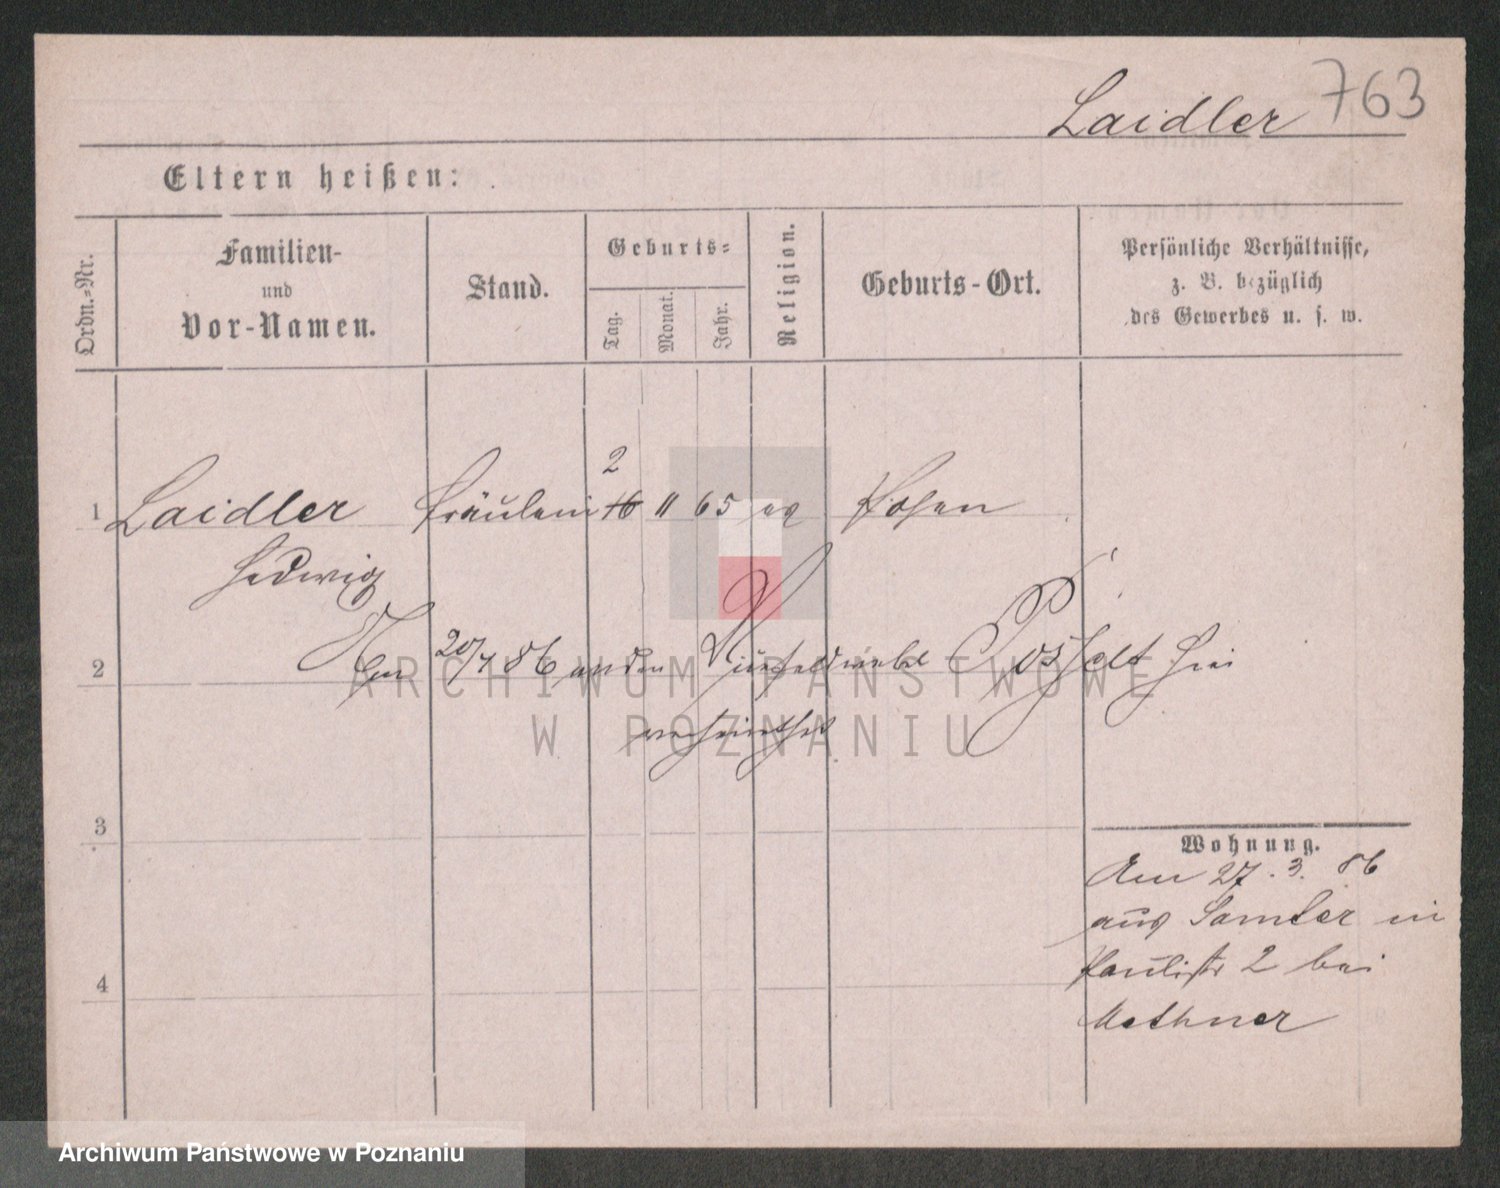 Laidler 763
Eltern heißen:
Ordn.=Nr.
Familien-
und
Vor-Namen.
Stand.
Geburts=
Tag.
Monat.
Jahr.
Religion.
Geburts-Ort.
Persönliche Verhältnisse,
z. B. bezüglich
des Gewerbes u. s. w.
2
1 Laidler Fräulein 16 11 65 ev Posen
Hedwig
2 Am 20/7 86 an den Vicefeldwebel Posselt hier
verheirathet
3
Wohnung.
Am 27. 3. 86
aus Samter in
Paulistr 2 bei
Methner
4
ARCHIWUM PAŃSTWOWE
W POZNANIU
Archiwum Państwowe w Poznaniu